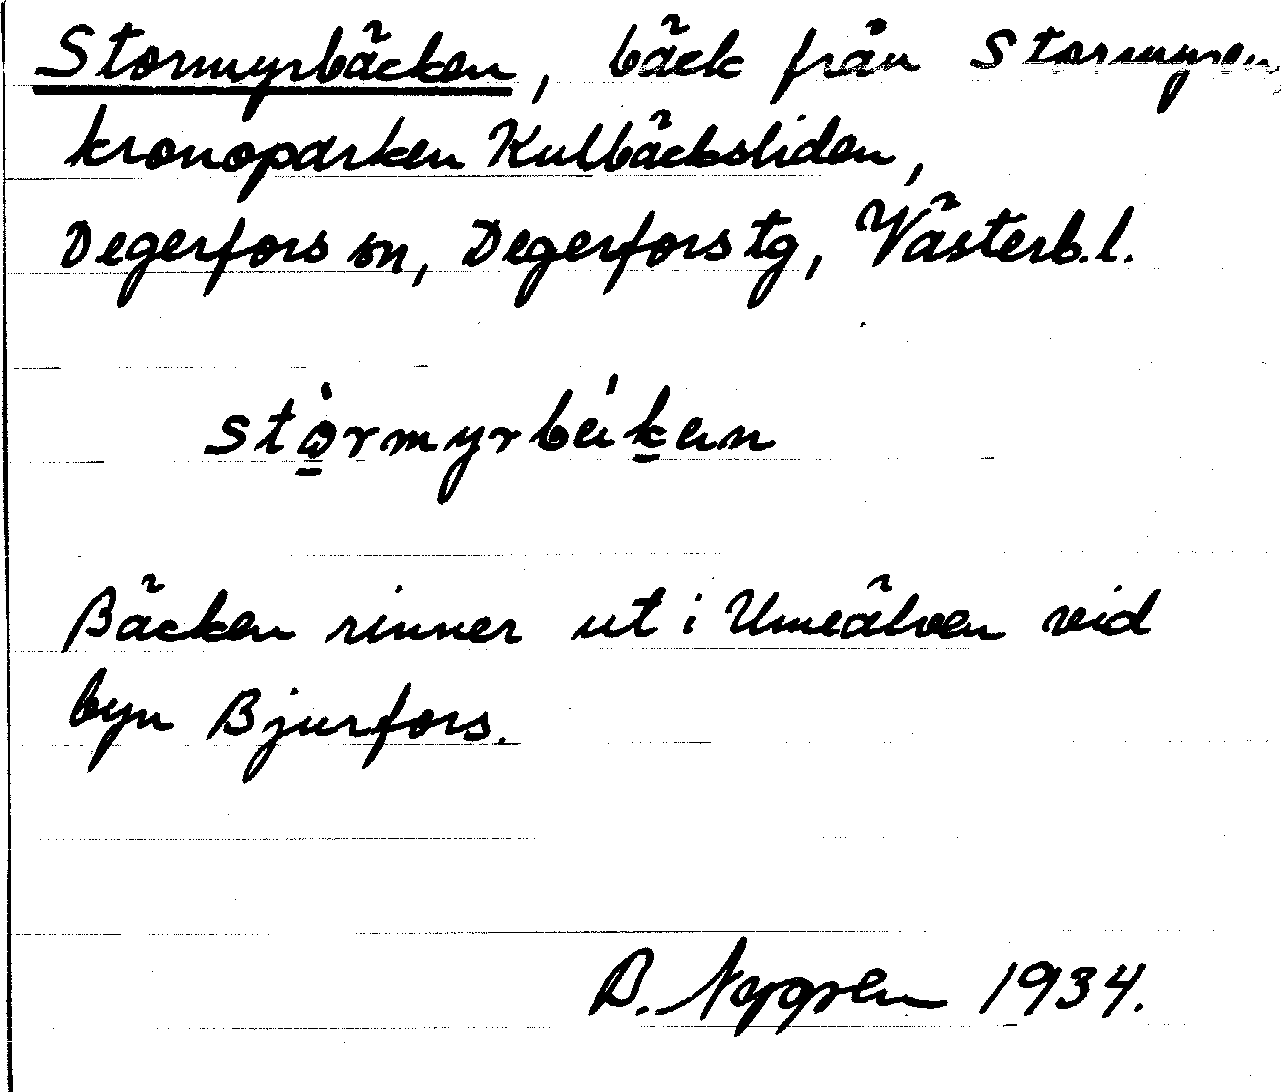 Stormyrbäcken, bäck från Stormyren,
kronoparken Kulbäcksliden,
Degerfors sn, Degerfors tg, Västerb.l.
stò̱rmyrbéḵen
Bäcken rinner ut i Umeälven vid
byn Bjurfors.
B. Nygren 1934.